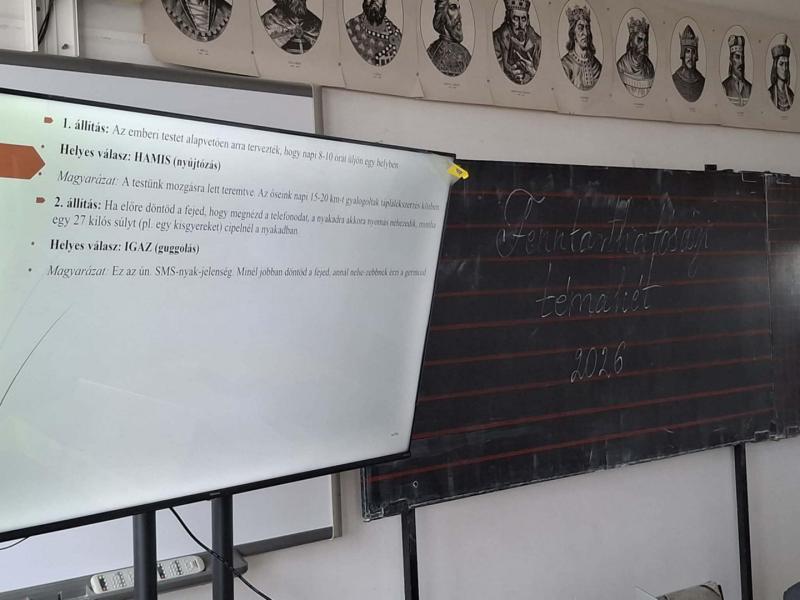 1. állítás: Az emberi testet alapvetően arra tervezték, hogy napi 8-10 órát üljön egy helyben
Helyes válasz: HAMIS (nyújtózás)
Magyarázat: A testünk mozgásra lett teremtve. Az őseink napi 15-20 km-t gyalogoltak táplálékszerzés közben.
2. állítás: Ha előre döntöd a fejed, hogy megnézd a telefonodat, a nyakadra akkora nyomás nehezedik, mintha
egy 27 kilós súlyt (pl. egy kisgyereket) cipelnél a nyakadban.
Helyes válasz: IGAZ (guggolás)
Magyarázat: Ez az ún. SMS-nyak-jelenség. Minél jobban döntöd a fejed, annál nehezebbnek érzi a gerinced
Fenntarthatósági
témahét
2026